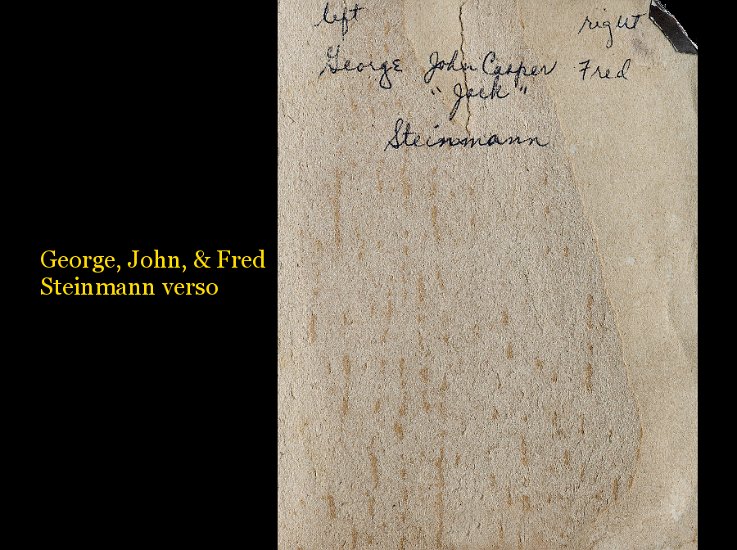 left right
George John Casper Fred
"Jack"
Steinmann
George, John, & Fred
Steinmann verso